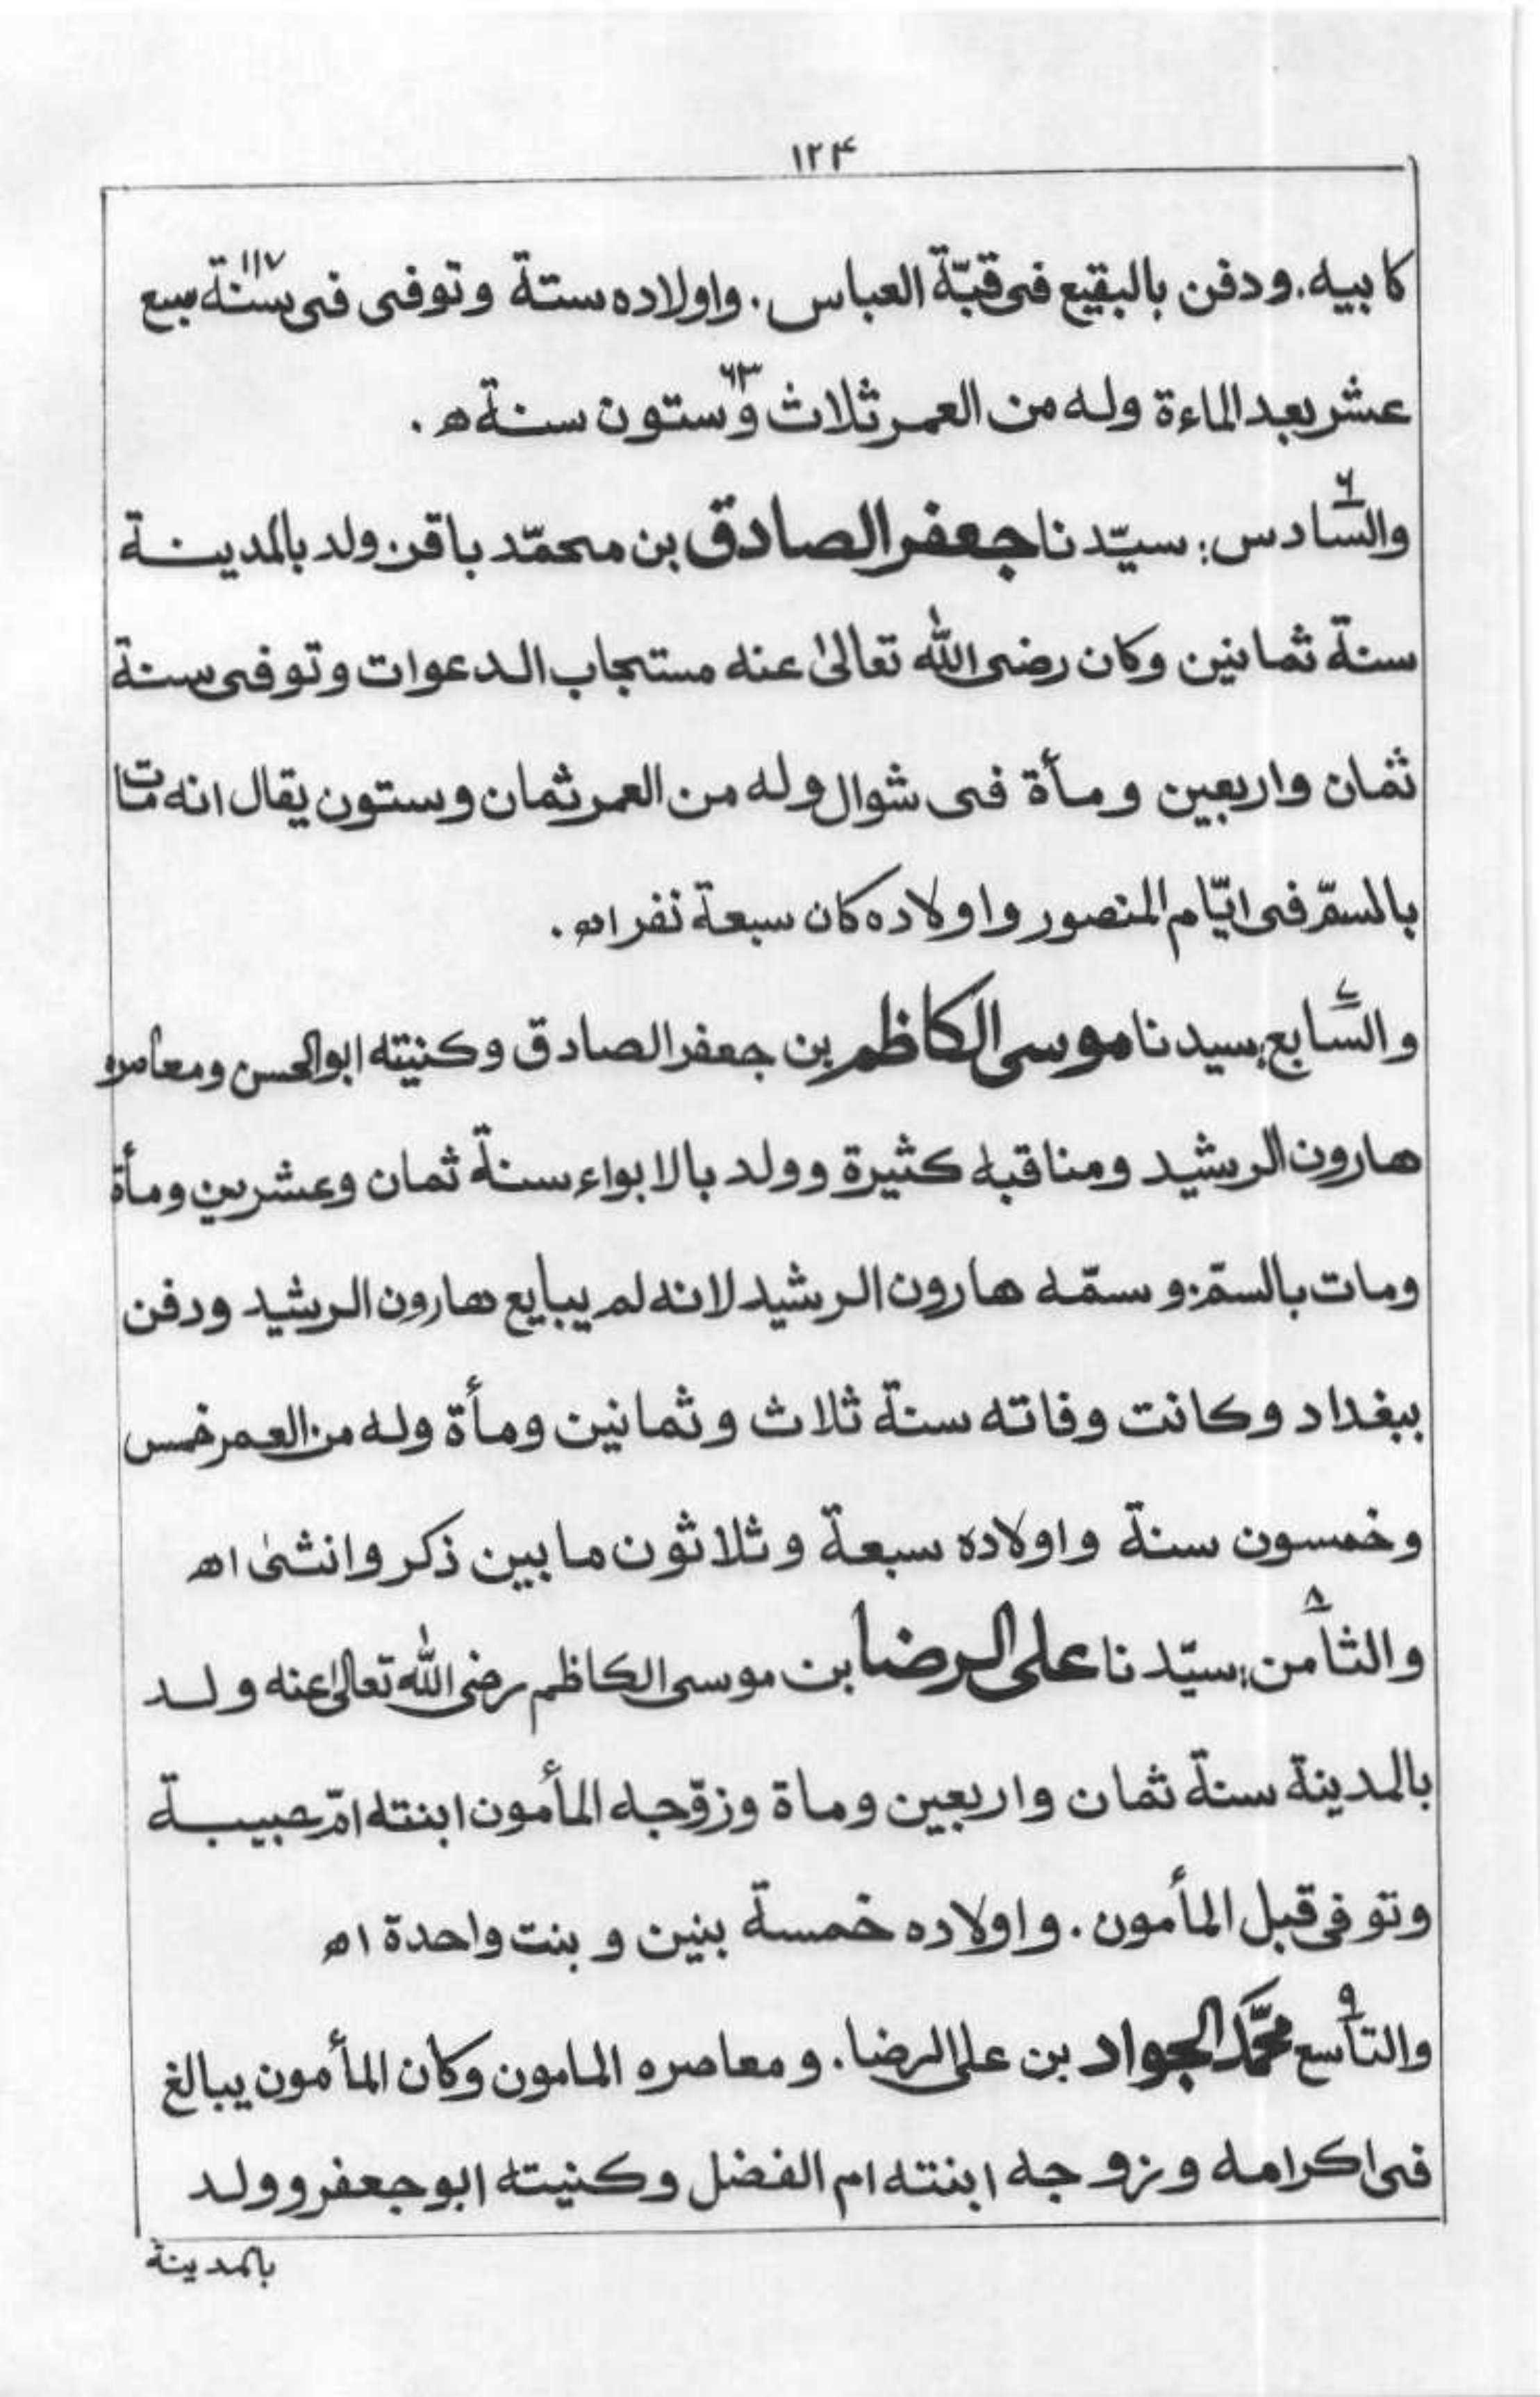 ۱۲۴
كابيه. ودفن بالبقيع فى قبّة العباس. واولاده ستة وتوفى فى سنة ۱۱۷ سبع
عشر بعد الماءة وله من العمر ثلاث وستون ۶۳ سنة ه .
والسّادس ۶: سيّدنا جعفر الصادق بن محمّد باقر. ولد بالمدينة
سنة ثمانين وكان رضى الله تعالىٰ عنه مستجاب الدعوات وتوفى سنة
ثمان واربعين ومأة فى شوال وله من العمر ثمان وستون يقال انه مات
بالسمّ فى ايّام المنصور واولاده كان سبعة نفر اه .
والسّابع ۷: سيدنا موسى الكاظم بن جعفر الصادق وكنيته ابوالحسن ومعاصره
هارون الرشيد ومناقبه كثيرة وولد بالابواء سنة ثمان وعشرين ومأة
ومات بالسمّ. وسمّه هارون الرشيد لانه لم يبايع هارون الرشيد ودفن
ببغداد وكانت وفاته سنة ثلاث وثمانين ومأة وله من العمر خمس
وخمسون سنة واولاده سبعة وثلاثون ما بين ذكر وانثىٰ اه
والثامن ۸: سيّدنا على الرضا بن موسى الكاظم رضى الله تعالىٰ عنه ولد
بالمدينة سنة ثمان واربعين وماة وزوّجه المأمون ابنته امّ حبيبة
وتوفى قبل المأمون. واولاده خمسة بنين وبنت واحدة اه
والتاسع ۹ محمَّد الجواد بن على الرضا. ومعاصره المامون وكان المأمون يبالغ
فى اكرامه وزوجه ابنته ام الفضل وكنيته ابو جعفر وولد
بالمدينة